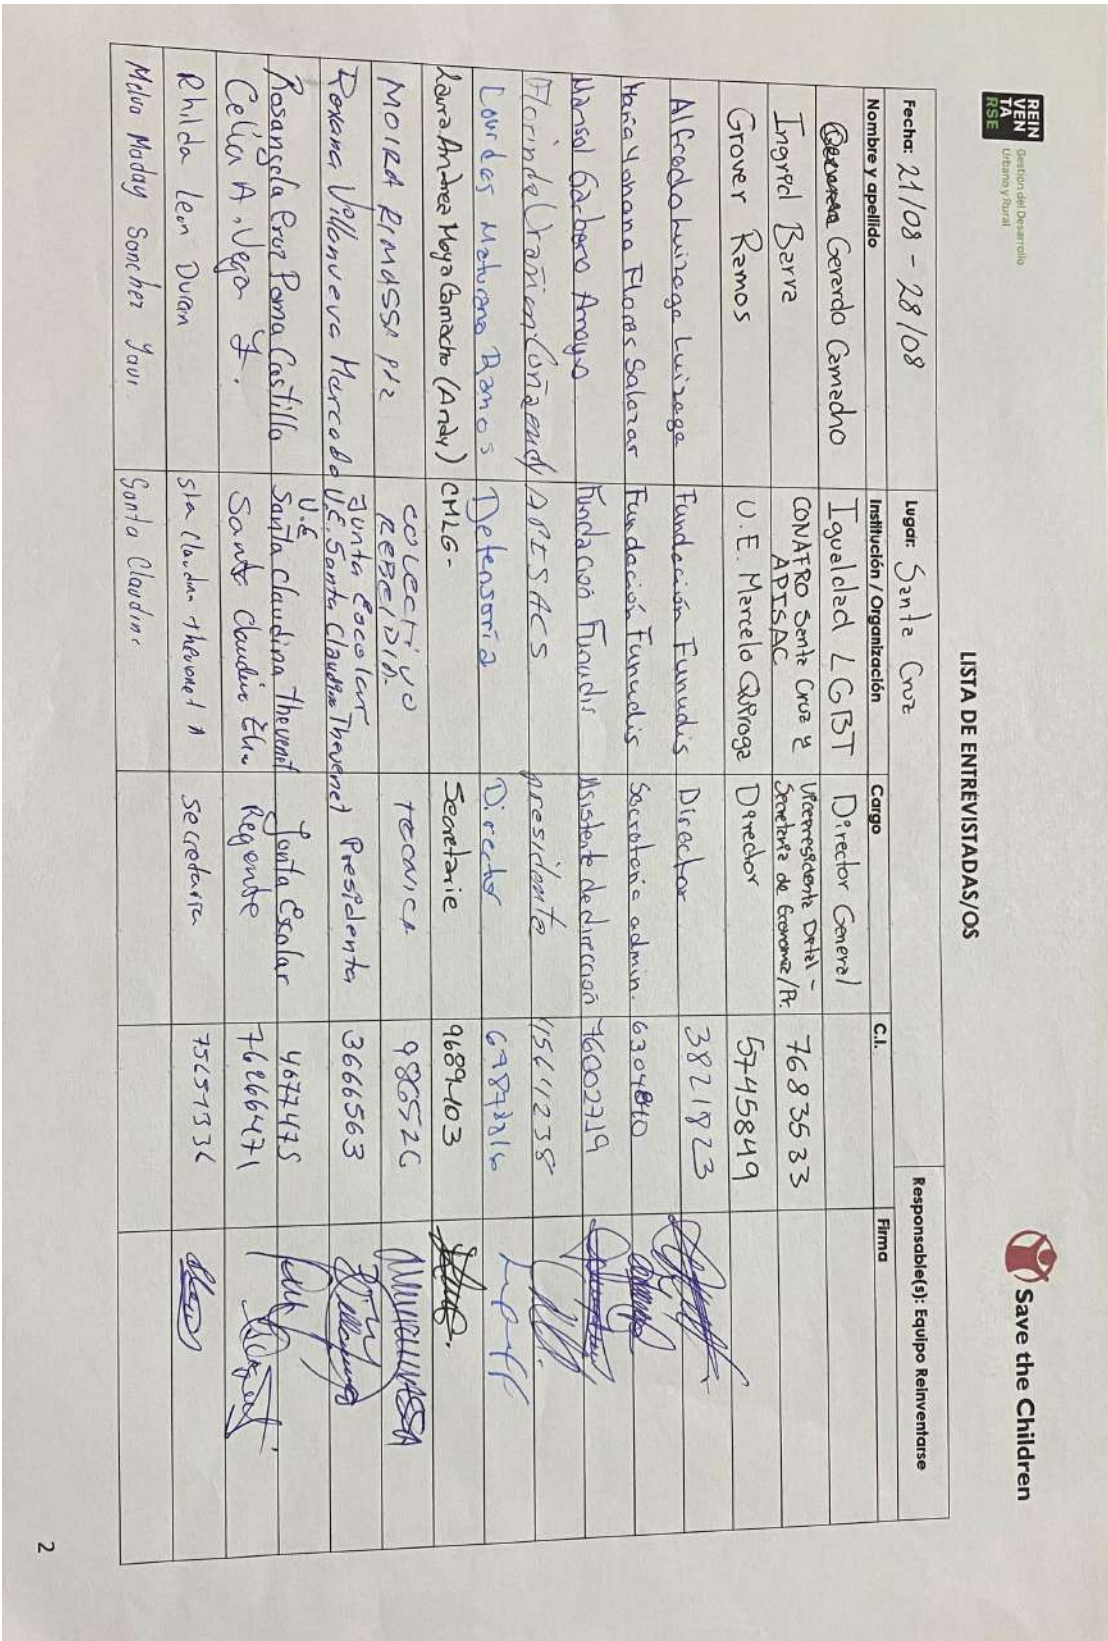 REIN
VEN
TA
RSE
Gestión del Desarrollo
Urbano y Rural
Save the Children
LISTA DE ENTREVISTADAS/OS
Fecha: 21/08 - 28/08 Lugar: Santa Cruz Responsable(s): Equipo Reinventarse
Nombre y apellido Institución / Organización Cargo C.I. Firma
Gerardo Camacho Igualdad LGBT Director General
Ingrid Barra CONAFRO Santa Cruz y APISAC Vicepresidenta Dptal - Secretaria de Economía/Pr. 7683583
Grover Ramos U.E. Marcelo Quiroga Director 5745849
Alfredo Luizaga Luizaga Fundación Funudis Director 3821823
Maria Yohana Flores Salazar Fundación Funudis Secretaria admin. 6304840
Marisol Arroyo Fundación Funudis Asistente de dirección 76002719
Florinda APISACS presidenta
Lourdes Maturana Ramos Defensoria Director
Laura Andrea Moya Camacho (Andy) CMLG- Secretarie 9689403
MOIRA RIMASSA PAZ COLECTIVO REBELDIA. TECNICA 986526
Roxana Villanueva Mercado Junta Escolar U.E. Santa Claudina Thevenet Presidenta 3666563
Rosangela Cruz Poma Castillo U.E Santa Claudina Thevenet Junta Escolar 4677475
Celia A. Vega F. Santa Claudina Regente 76266471
Rhilda Leon Duran Sta Claudina Thevenet Secretaria
Melva Sanchez Santa Claudina
2